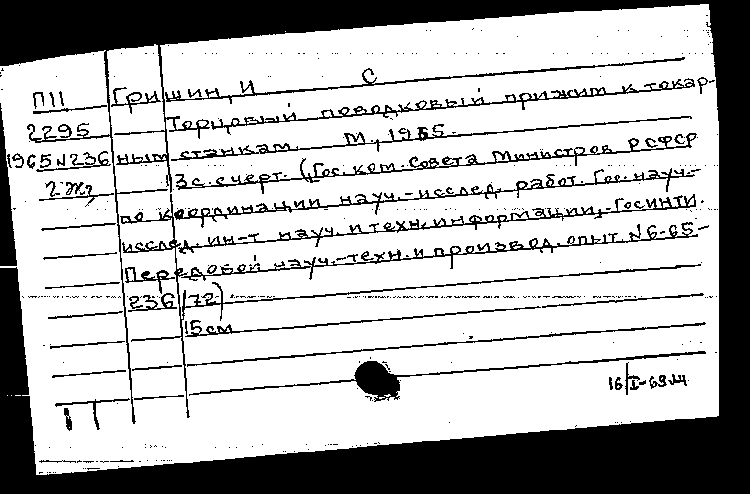 П11 Гришин, И С
2295 Торцовый поводковый прижим к токар-
1965 N236 ным станкам. М., 1965.
2 эк, 13 с. с черт. (Гос. ком. Совета Министров РСФСР
по координации науч.-исслед. работ. Гос. науч.-
исслед. ин-т науч. и техн. информации,- Госинти.
Передовой науч.-техн. и производ. опыт. N 6-65-
236/72)
15 см
16/I-69 м